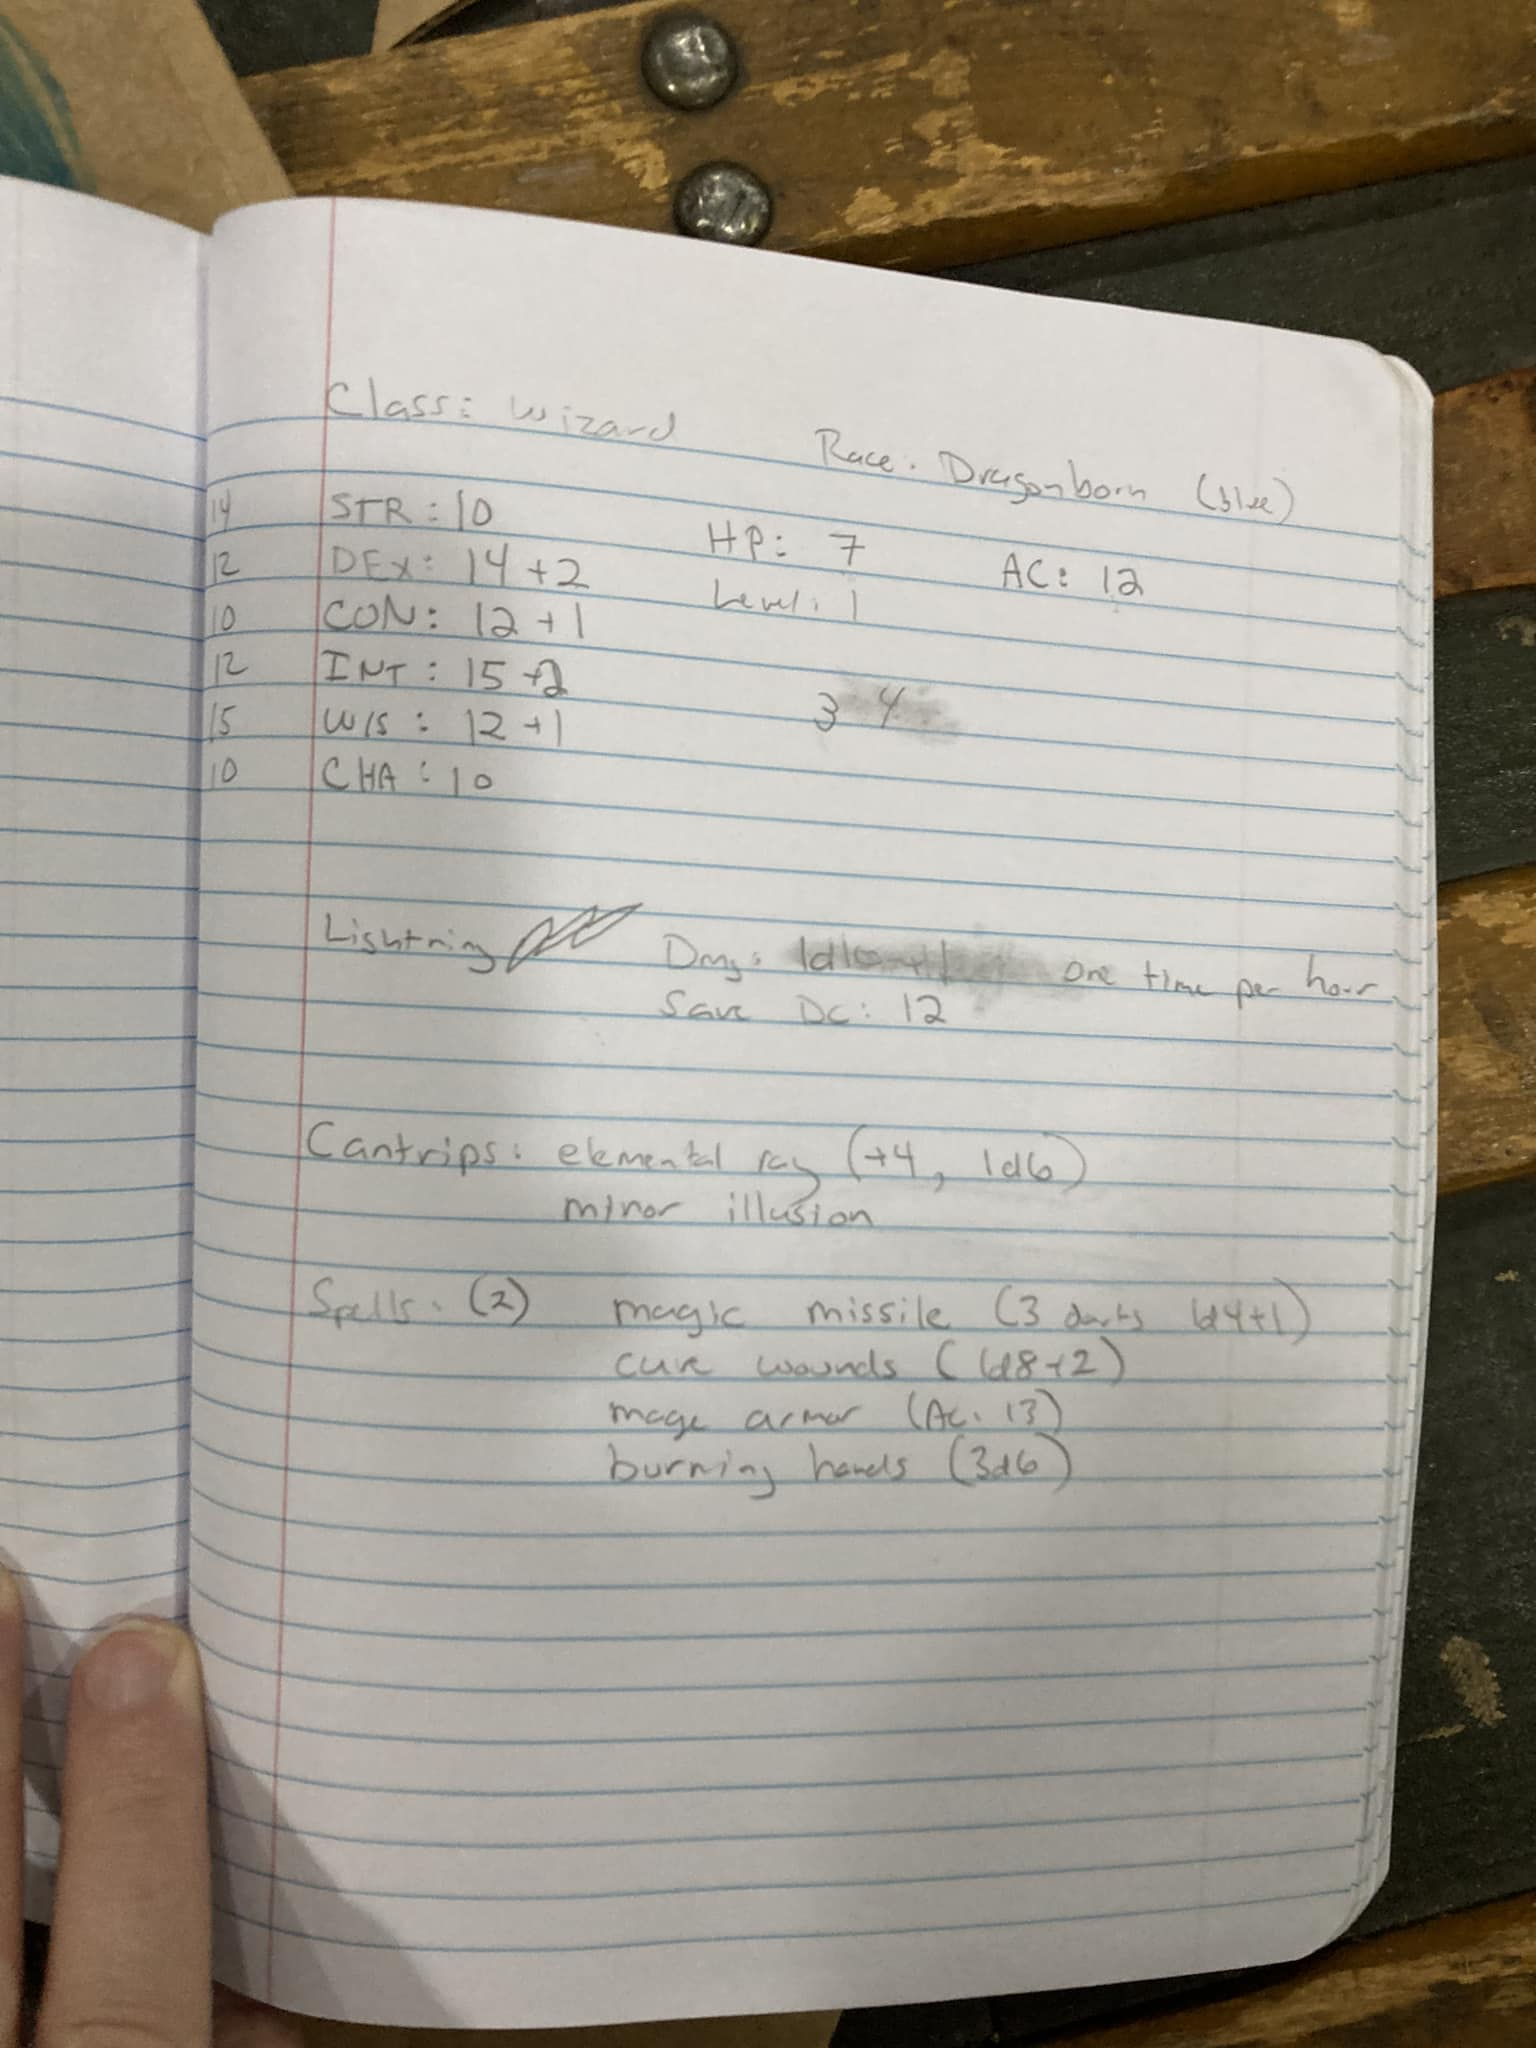 Class: Wizard Race: Dragonborn (blue)
14 STR: 10 HP: 7 AC: 12
12 DEX: 14 +2 Level: 1
10 CON: 12 +1
12 INT: 15 +2 3 4
15 WIS: 12 +1
10 CHA: 10
Lightning Dmg: 1d10+1 one time per hour
Save DC: 12
Cantrips: elemental ray (+4, 1d6)
minor illusion
Spells: (2) magic missile (3 darts 1d4+1)
cure wounds (1d8+2)
mage armor (AC: 13)
burning hands (3d6)